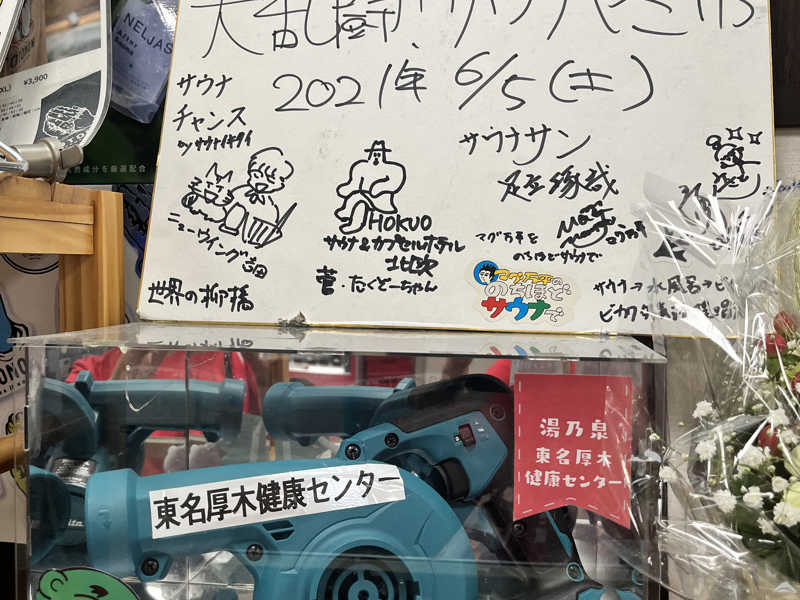 NELJÄS
After
XL) ¥3,900
2021年 6/5(土)
サウナ
チャンス
by サウナイキタイ
ニューウイング吉田
世界の柳橋
HOKUO
サウナ&カプセルホテル
北欧
菅・たくどーちゃん
サウナサン
マグ万平を
のちほどサウナで
マグ万平の
のちほど
サウナで
サウナ→水風呂→ビ
ビカ
天然成分を厳選配合
湯乃泉
東名厚木
健康センター
東名厚木健康センター
kita